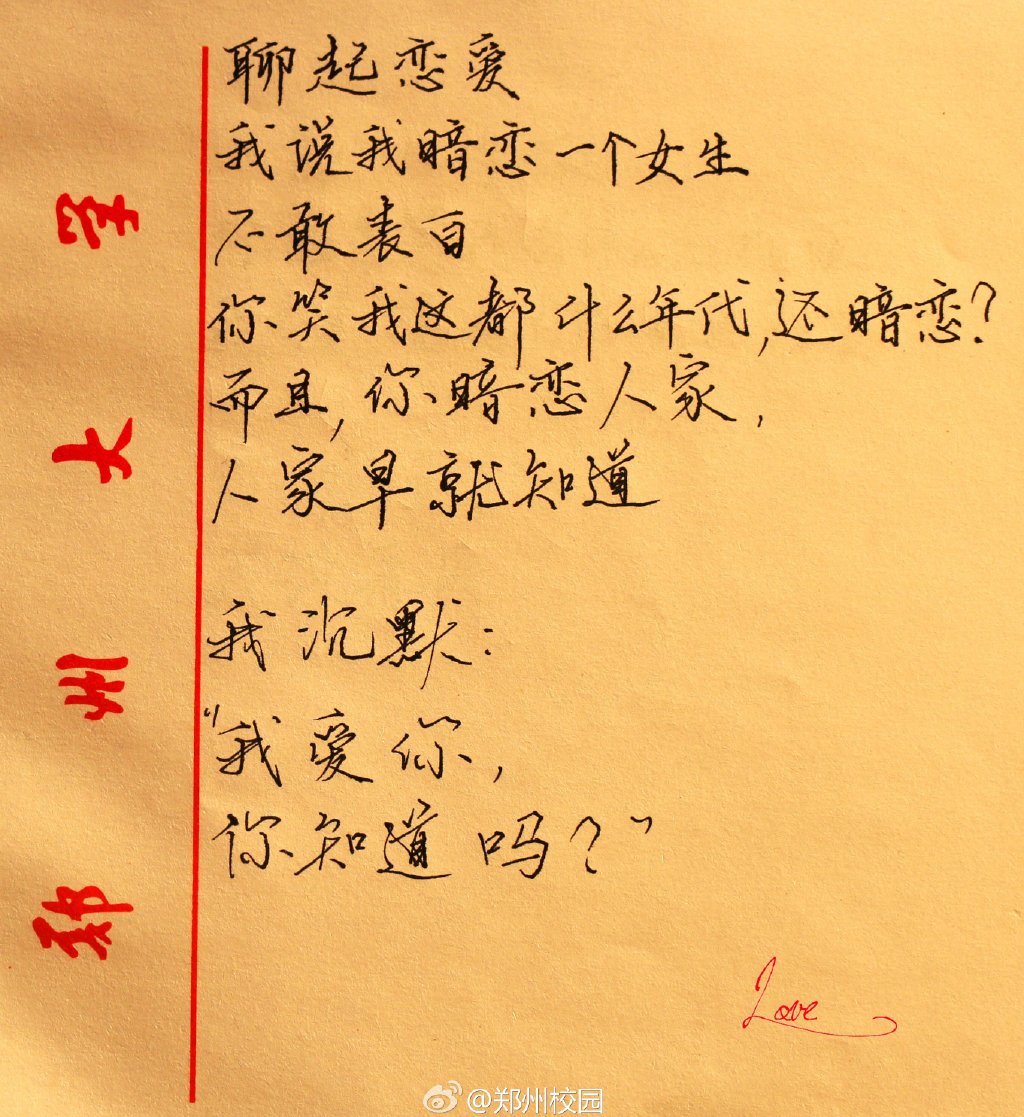 聊起恋爱
我说我暗恋一个女生
不敢表白
你笑我这都什么年代,还暗恋?
而且,你暗恋人家,
人家早就知道
我沉默:
"我爱你,
你知道吗?"
郑州大学
Love
@郑州校园